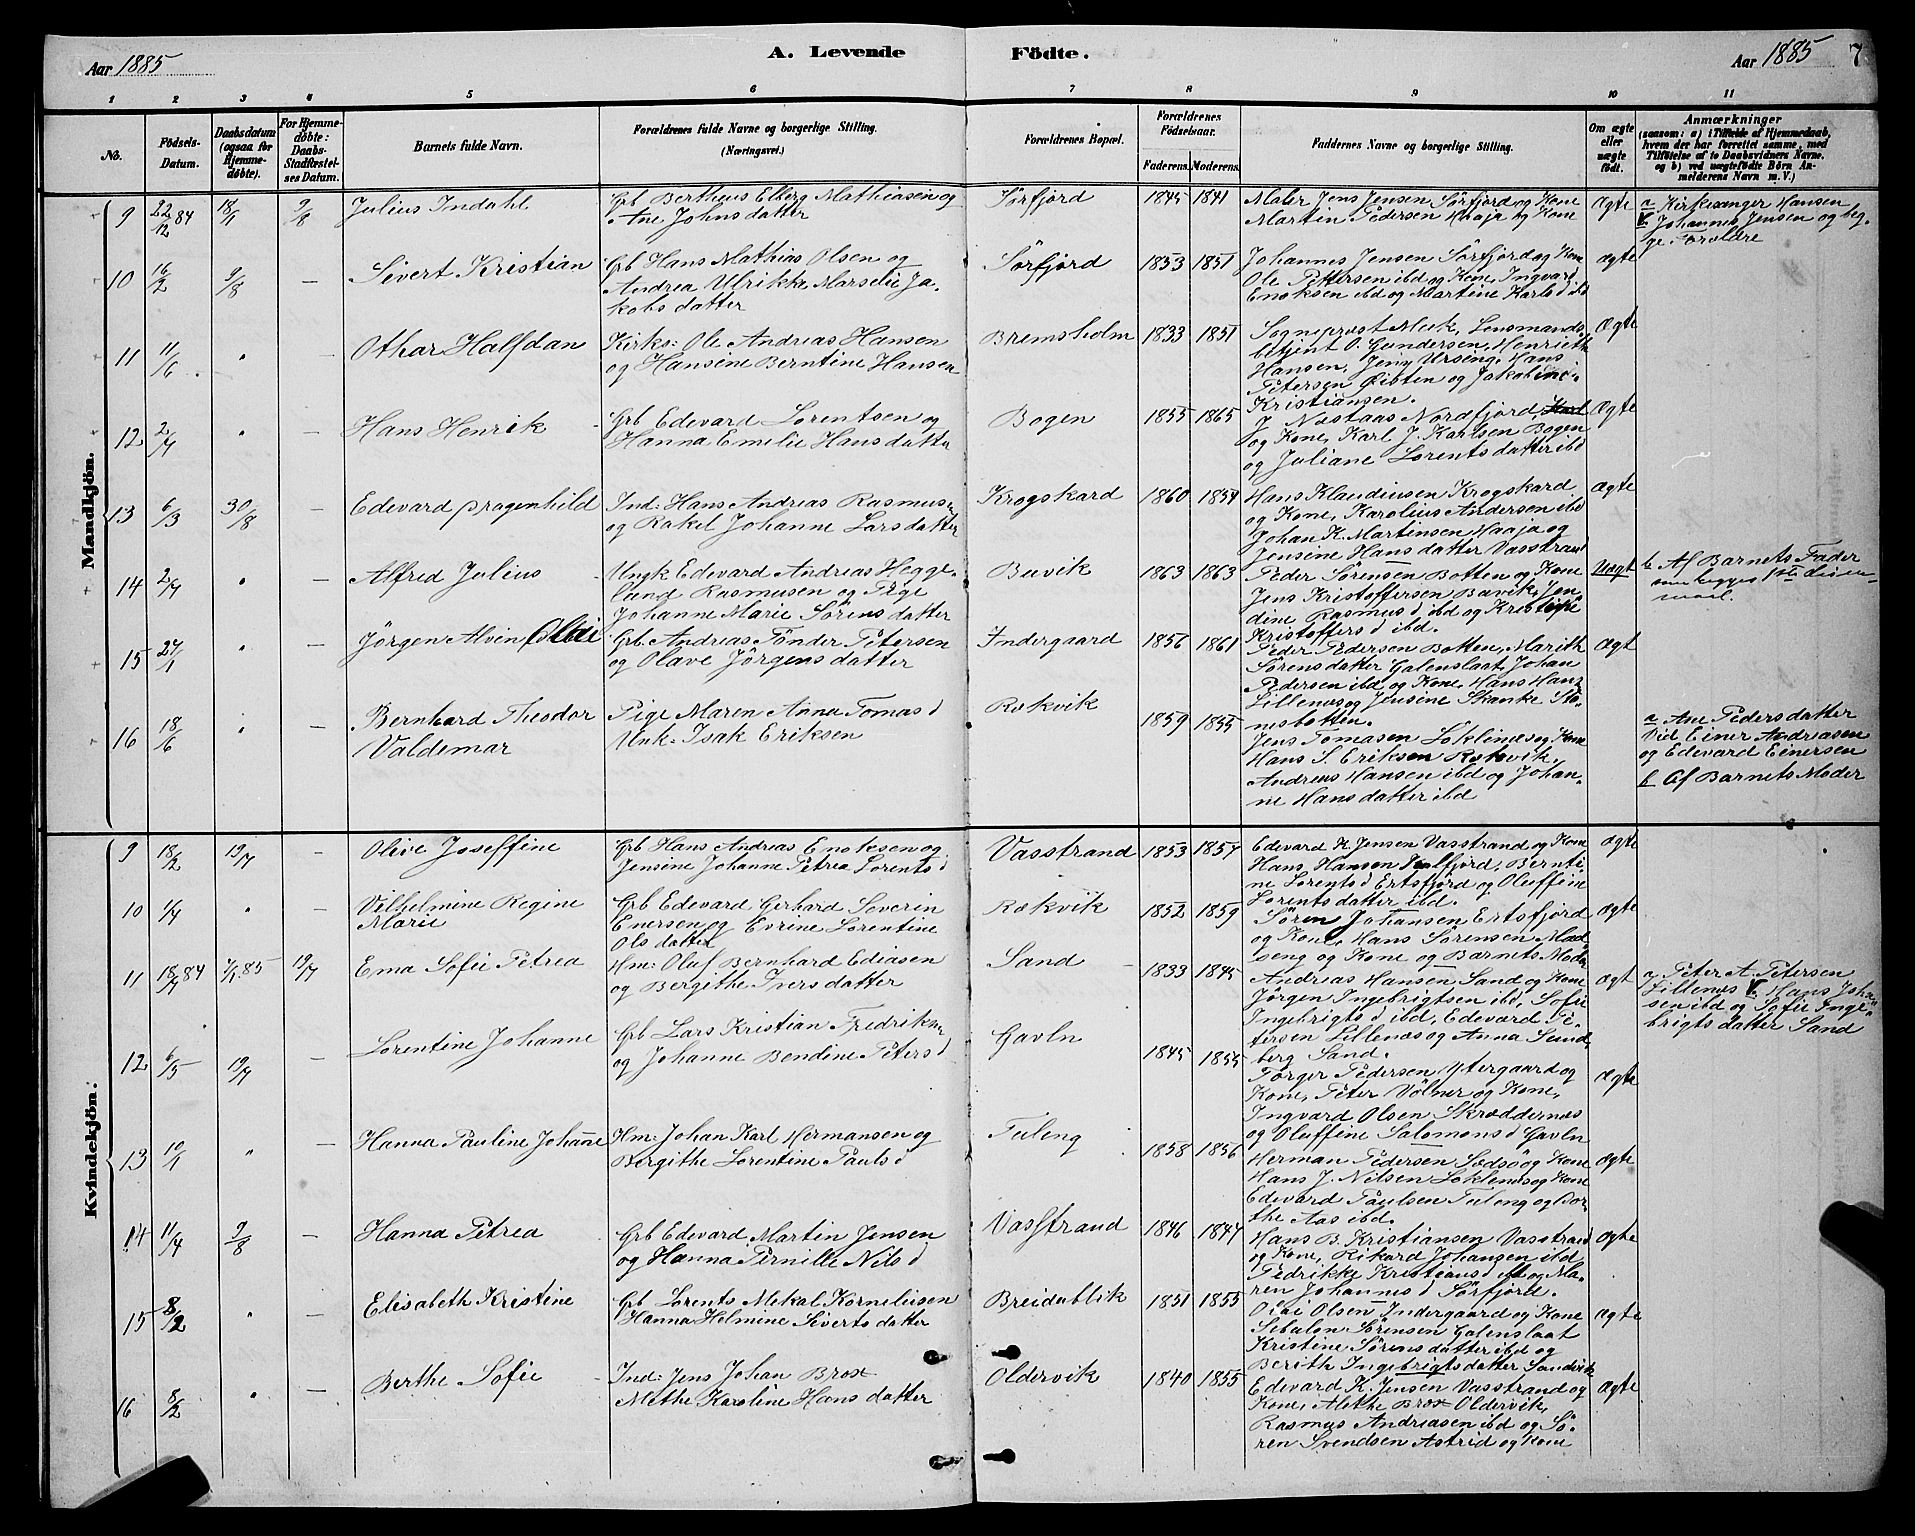 Aar 1885
A. Levende Födte.
Aar 1885
7
1 2 3 4 5 6 7 8 9 10 11
No.
Födsels-Datum.
Daabsdatum (ogsaa for Hjemme-döbte).
For Hjemme-döbte: Daabs-Stadfæstelses Datum.
Barnets fulde Navn.
Forældrenes fulde Navne og borgerlige Stilling.
(Næringsvei.)
Forældrenes Bopæl.
Forældrenes Födselsaar.
Faderens. Moderens.
Faddernes Navne og borgerlige Stilling.
Om ægte eller uægte födt.
Anmærkninger
(saasom: a) i Tilfælde af Hjemmedaab, hvem der har forrettet samme, med Tilföielse af to Daabsvidners Navne, og b) ved uægtefödte Börn Anmelderens Navn m. V.)
Mandkjön.
9 22/12 84 18/1 9/8 Julius Indahl
Grb Bertheus Elberg Mathiasen og
Ane Johnsdatter
Sörfjord 1845 1841
Maler Jens Jensen Sörfjord og Kone
Martin Pedersen Haaja og Kone
Ægte
a Kirkesanger Hansen
V. Johannes Jensen og beg-
ge Forældre
10 16/2 9/8 — Sivert Kristian
Grb Hans Mathias Olsen og
Andrea Ulrikke Marselie Ja-
kobsdatter
Sörfjord 1853 1851
Johannes Jensen Sörfjord og Kone
Ole Pettersen ibd og Kone, Ingvard
Enoksen ibd og Martine Karlsd ibd
ægte
11 11/6 " — Othar Halfdan
Kirks: Ole Andreas Hansen
og Hansine Berntine Hansen
Bremsholm 1833 1851
Sognepræst Meek, Lensmands-
betjent O. Gundersen, Henriette
Hansen, Jeny Ursing, Hans
Petersen og Jakobine
Kristiansen.
Ægte
12 2/7 " — Hans Henrik
Grb Edevard Lorentsen og
Hanna Emilie Hansdatter
Bogen 1855 1865
J. Næstaas Nordfjord,
og Kone, Karl J. Karlsen Bogen
og Juliane Lorentsdatter ibd
Ægte
13 6/3 30/8 — Edevard pragenhild
Ind: Hans Andreas Rasmusen
og Rakel Johanne Larsdatter
Krogskard 1860 1854
Hans Klaudiusen Krogskard
og Kone, Karolius Andersen ibd
Johan K. Martinsen Haaja og
Jensine Hansdatter Vasstrand
Ægte
14 2/7 " — Alfred Julius
Ungk Edevard Andreas Hegge-
lund Rasmusen og Pige
Johanne Marie Sörensdatter
Buvik 1863 1863
Peder Sörensen Botten og Kone
Jens Kristoffersen Buvik, Jen-
dine Rasmusd ibd og Kristine
Kristoffersd ibd.
Uægt
b Af Barnets Fader
begges 1ste leier-
maal.
15 27/1 " — Jörgen Alvin Olai
Grb. Andreas Tönder Petersen
og Olave Jörgensdatter
Indergaard 1856 1861
Peder Pedersen Botten, Marith
Sörensdatter Galenslaat, Johan
Pedersen ibd og Kone, Hans Hans
Lillenes og Jensine Skanke
botten.
Ægt
16 18/6 " — Bernhard Theodor
Valdemar
Pige Maren Anna Tomasd
Unk. Isak Eriksen
Rækvik 1859 1855
Jens Tomasen Löklines og Kone
Hans S. Eriksen Rækvik,
Andreas Hansen ibd og Johan-
ne Hansdatter ibd
a Ane Pedersdatter
Vid Einer Andreasen
og Edevard Einersen
b Af Barnets Moder
Kvindekjön.
9 18/2 19/7 — Olive Joseffine
Grb Hans Andreas Enoksen og
Jensine Johanne Petrea Lorentsd
Vasstrand 1853 1857
Edevard K. Jensen Vasstrand og Kone
Hans Hansen Kalfjord, Bernti-
ne Lorentsd Ertsfjord og Oluffine
Lorentsdatter ibd.
ægte
10 1/7 " — Vilhelmine Regine
Marie
Grb Edevard Gerhard Severin
Enersen og Evrine Lorentine
Olsdatter
Rækvik 1852 1859
Sören Johansen Ertsfjord
og Kone, Hans Sörensen Mad-
seng og Kone og Barnets Moder
Ægte
11 18/7 84 1/1 85 19/7 Ema Sofie Petrea
Hm: Oluf Bernhard Ediasen
og Bergithe Iversdatter
Sand 1833 1845
Andreas Hansen Sand og Kone
Jörgen Ingebrigtsen ibd, Sofie
Ingebrigtsd ibd, Edevard Pe-
tersen Lillenes og Anna Sund-
berg Sand.
Ægt
a Peter A. Petersen
Lillenes V. Hans Joha-
sen ibd og Sofie Inge-
brigtsdatter Sand
12 6/5 19/7 — Lorentine Johanne
Grb Lars Kristian Fredriksen
og Johanne Bendine Petersd
Gavln 1845 1855
Torger Pedersen Ytergaard og
Kone, Peter Völner og Kone,
Ingvard Olsen Skræddernes
og Oluffine Salomonsd Gavln
Ægte
13 10/1 " — Hanna Pauline Johanne
Hm: Johan Karl Hermansen og
Bergithe Lorentine Paulsd
Tuleng 1858 1856
Herman Pedersen og Kone
Hans J. Nilsen Löklenes og Kone
Edevard Paulsen Tuleng og Dor-
the Aas ibd.
Ægte
14 11/4 9/8 — Hanna Petrea
Grb Edevard Martin Jensen
og Hanna Pernille Nilsd
Vasstrand 1846 1847
Hans B. Kristiansen Vasstrand
og Kone, Rikard Johansen ibd
Pedrikke Kristiansd ibd og Ma-
ren Johannesd Sörfjord.
Ægte
15 8/2 " — Elisabeth Kristine
Grb Lorents Mekal Korneliusen
Hanna Helmine Sivertsdatter
Breidablik 1851 1855
Olai Olsen Indergaard og Kone
Sebulon Sörensen Galenslaat
Kristine Sörensdatter ibd og
Berith Ingebrigtsdatter Sandvik
Ægte
16 8/2 " — Berthe Sofie
Ind: Jens Johan Brox
Methe Karoline Hansdatter
Oldervik 1840 1855
Edevard K. Jensen Vasstrand og
Kone, Methe Brox Oldervik,
Rasmus Andreasen ibd og Sö-
ren Svendsen Astrid og Kone
Ægte